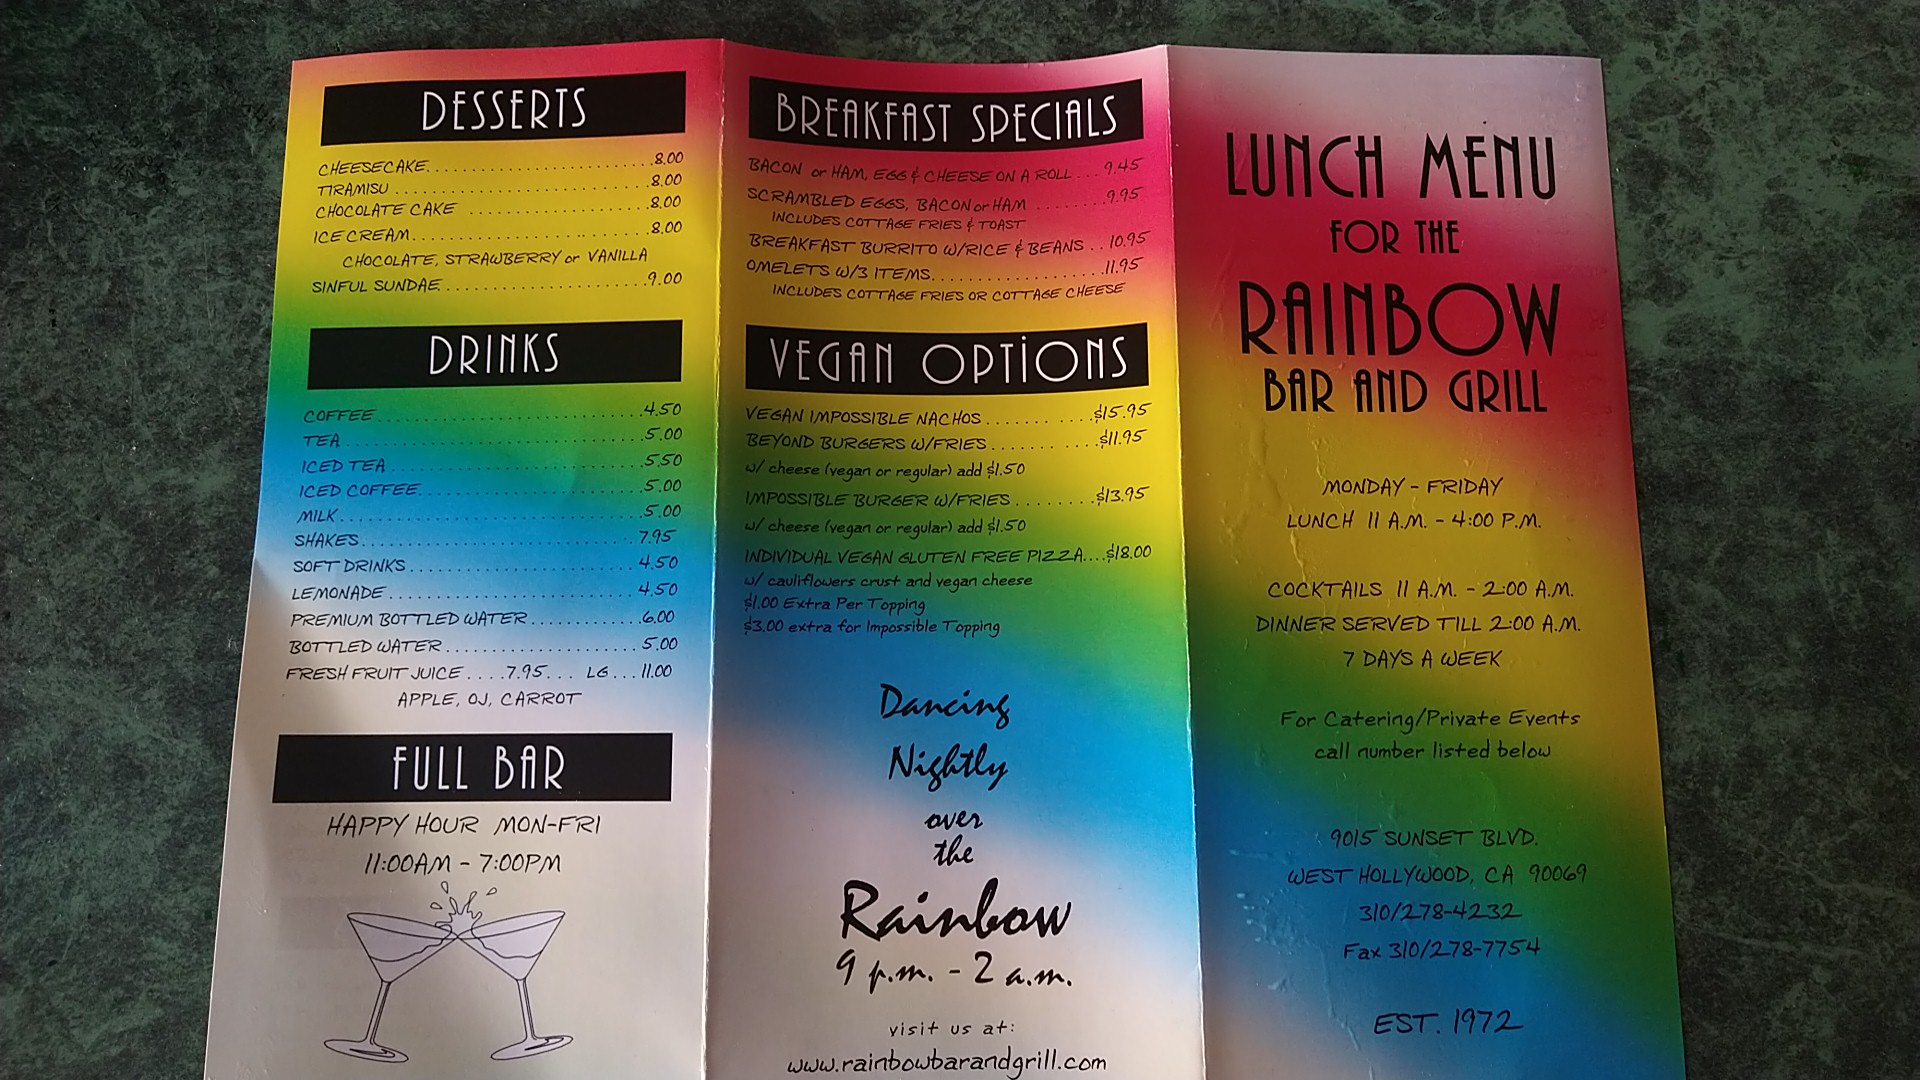 DESSERTS
CHEESECAKE..........................8.00
TIRAMISU..............................8.00
CHOCOLATE CAKE .....................8.00
ICE CREAM............................8.00
CHOCOLATE, STRAWBERRY or VANILLA
SINFUL SUNDAE.......................9.00
DRINKS
COFFEE...............................4.50
TEA...................................5.00
ICED TEA..............................5.50
ICED COFFEE..........................5.00
MILK..................................5.00
SHAKES...............................7.95
SOFT DRINKS..........................4.50
LEMONADE............................4.50
PREMIUM BOTTLED WATER............6.00
BOTTLED WATER......................5.00
FRESH FRUIT JUICE....7.95... LG...11.00
APPLE, OJ, CARROT
FULL BAR
HAPPY HOUR MON-FRI
11:00AM - 7:00PM
BREAKFAST SPECIALS
BACON or HAM, EGG & CHEESE ON A ROLL...9.45
SCRAMBLED EGGS, BACON or HAM ........9.95
INCLUDES COTTAGE FRIES & TOAST
BREAKFAST BURRITO W/RICE & BEANS..10.95
OMELETS W/3 ITEMS....................11.95
INCLUDES COTTAGE FRIES OR COTTAGE CHEESE
VEGAN OPTIONS
VEGAN IMPOSSIBLE NACHOS..........$15.95
BEYOND BURGERS W/FRIES..........$11.95
w/ cheese (vegan or regular) add $1.50
IMPOSSIBLE BURGER W/FRIES........$13.95
w/ cheese (vegan or regular) add $1.50
INDIVIDUAL VEGAN GLUTEN FREE PIZZA....$18.00
w/ cauliflowers crust and vegan cheese
$1.00 Extra Per Topping
$3.00 extra for Impossible Topping
Dancing
Nightly
over
the
Rainbow
9 p.m. - 2 a.m.
visit us at:
www.rainbowbarandgrill.com
LUNCH MENU
FOR THE
RAINBOW
BAR AND GRILL
MONDAY - FRIDAY
LUNCH 11 A.M. - 4:00 P.M.
COCKTAILS 11 A.M. - 2:00 A.M.
DINNER SERVED TILL 2:00 A.M.
7 DAYS A WEEK
For Catering/Private Events
call number listed below
9015 SUNSET BLVD.
WEST HOLLYWOOD, CA 90069
310/278-4232
Fax 310/278-7754
EST. 1972